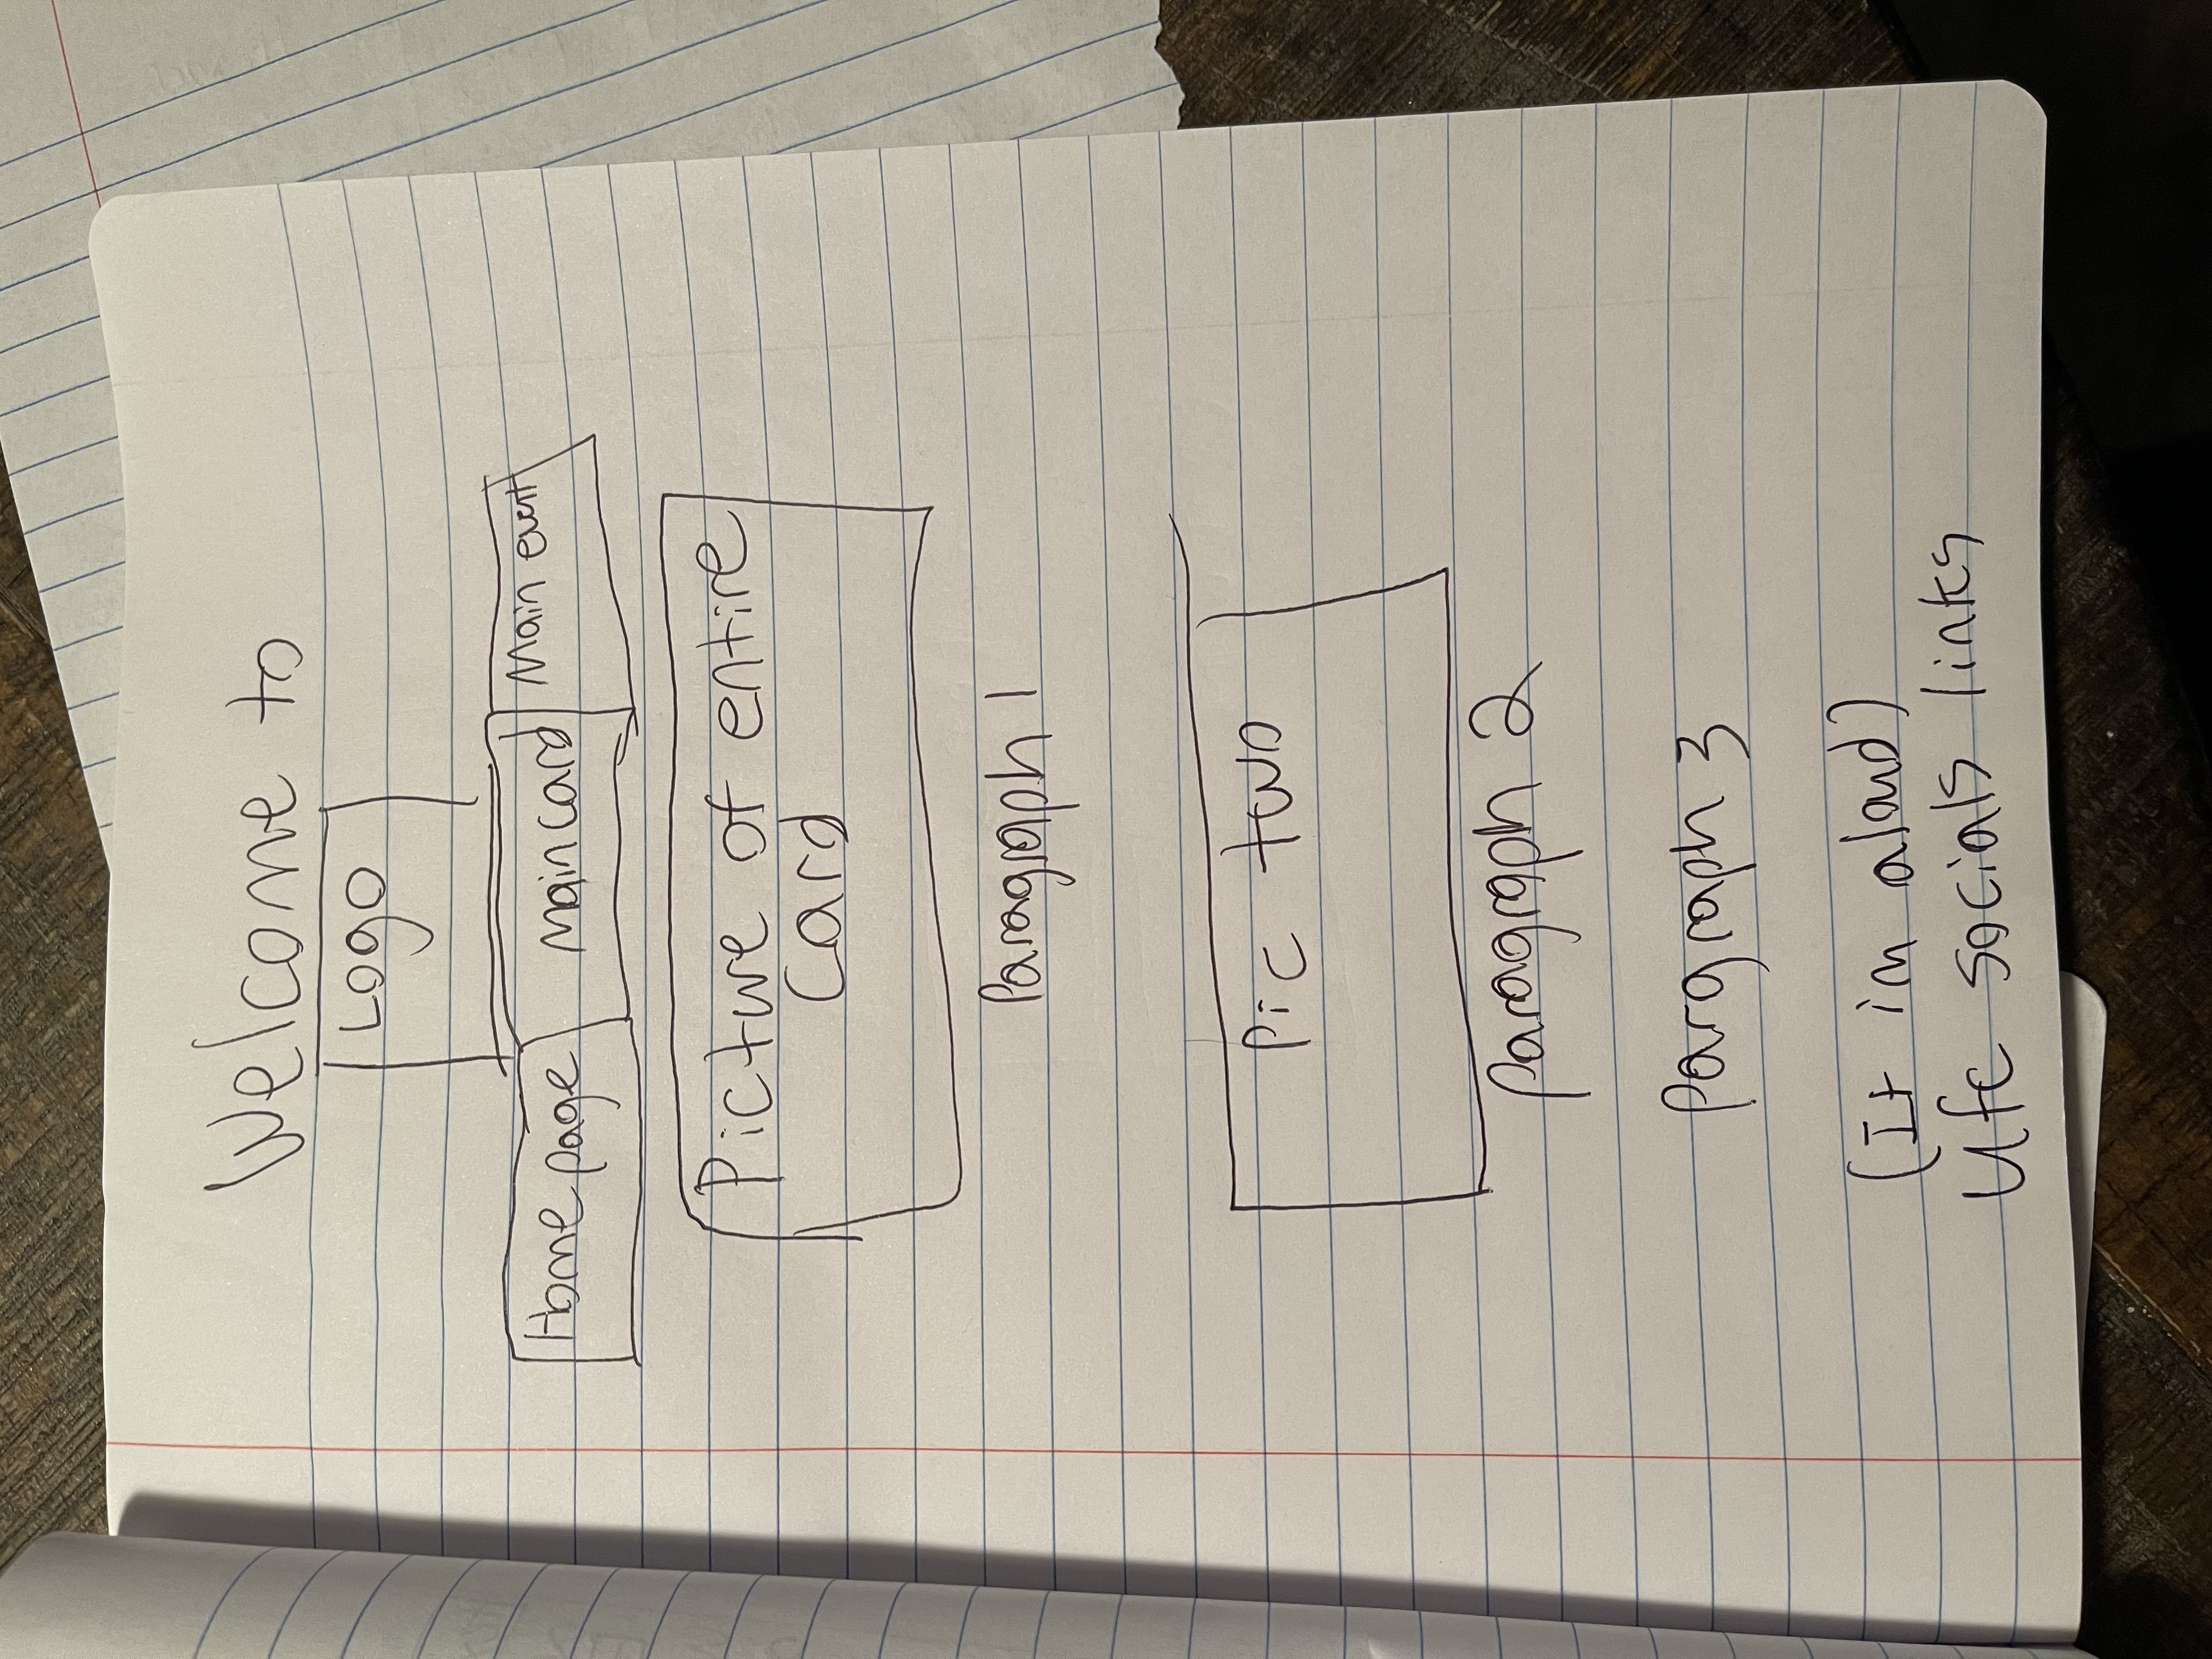 Welcome to
Logo
Home page Main card Main event
Picture of entire
Card
Paragraph 1
Pic two
Paragraph 2
Pargraph 3
(If im aloud)
Ufc socials links